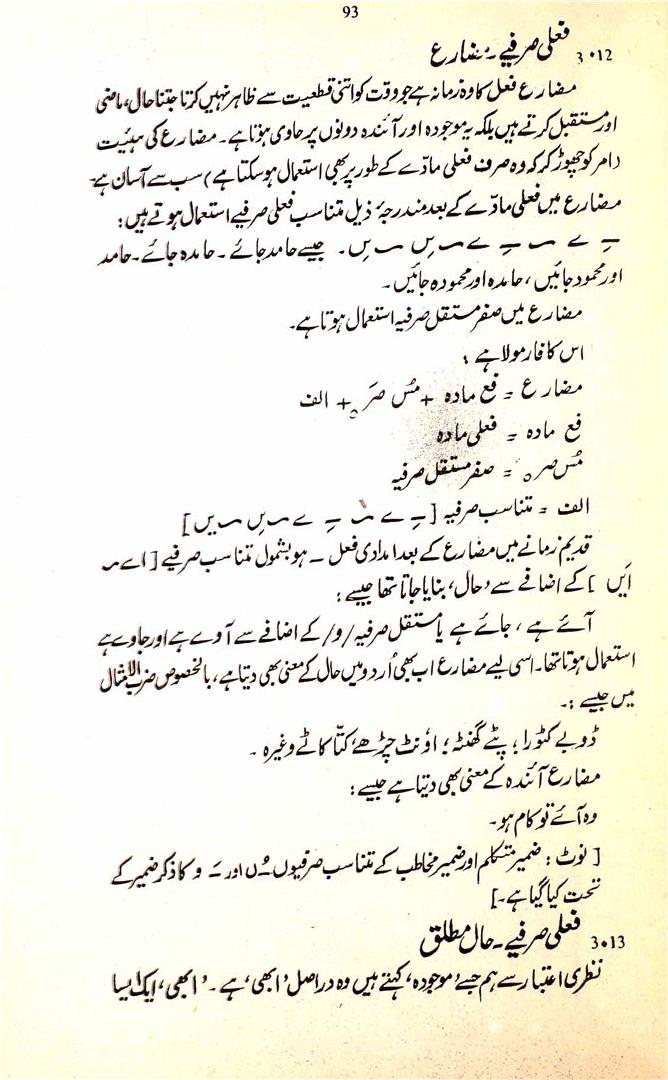 93
3.12 فعلی صرفیے ۔ مضارع
مضارع فعل کا وہ زمانہ ہے جو وقت کو اتنی قطعیت سے ظاہر نہیں کرتا جتنا حال، ماضی
اور مستقبل کرتے ہیں بلکہ یہ موجودہ اور آئندہ دونوں پر حاوی ہوتا ہے۔ مضارع کی ہیئیت
(امر کو چھوڑ کر کہ وہ صرف فعلی مادّے کے طور پر بھی استعمال ہو سکتا ہے) سب سے آسان ہے۔
مضارع میں فعلی مادّے کے بعد مندرجۂ ذیل متناسب فعلی صرفیے استعمال ہوتے ہیں:
جیسے حامد جائے ۔ حامدہ جائے ۔ حامد
اور محمود جائیں، حامدہ اور محمودہ جائیں۔
مضارع میں صفر مستقل صرفیہ استعمال ہوتا ہے۔
اس کا فارمولا ہے :
مضارع = فع مادہ + مُس صرَ ٥ + الف
فع مادہ = فعلی مادہ
مُس صر ٥ = صفر مستقل صرفیہ
الف = متناسب صرفیہ
قدیم زمانے میں مضارع کے بعد امدادی فعل ۔ ہو بشمول متناسب صرفیے [ اے
ایں ] کے اضافے سے 'حال' بنایا جاتا تھا جیسے :
آئے ہے ، جائے ہے یا مستقل صرفیہ /و/ کے اضافے سے آوے ہے اور جاوے ہے
استعمال ہوتا تھا۔ اسی لیے مضارع اب بھی اُردو میں حال کے معنی بھی دیتا ہے، بالخصوص ضرب الامثال
میں جیسے :۔
ڈوبے کٹورا؛ پٹے گھنٹہ؛ اونٹ چڑھے کتّا کاٹے وغیرہ ۔
مضارع آئندہ کے معنی بھی دیتا ہے جیسے :
وہ آئے تو کام ہو۔
[ نوٹ : ضمیر متکلم اور ضمیر مخاطب کے متناسب صرفیوں ـُـ ں اور ـَـ و کا ذکر ضمیر کے
تحت کیا گیا ہے۔]
3.13 فعلی صرفیے ۔ حال مطلق
نظری اعتبار سے ہم جسے 'موجودہ' کہتے ہیں وہ دراصل 'ابھی' ہے ۔ 'ابھی' ایک ایسا